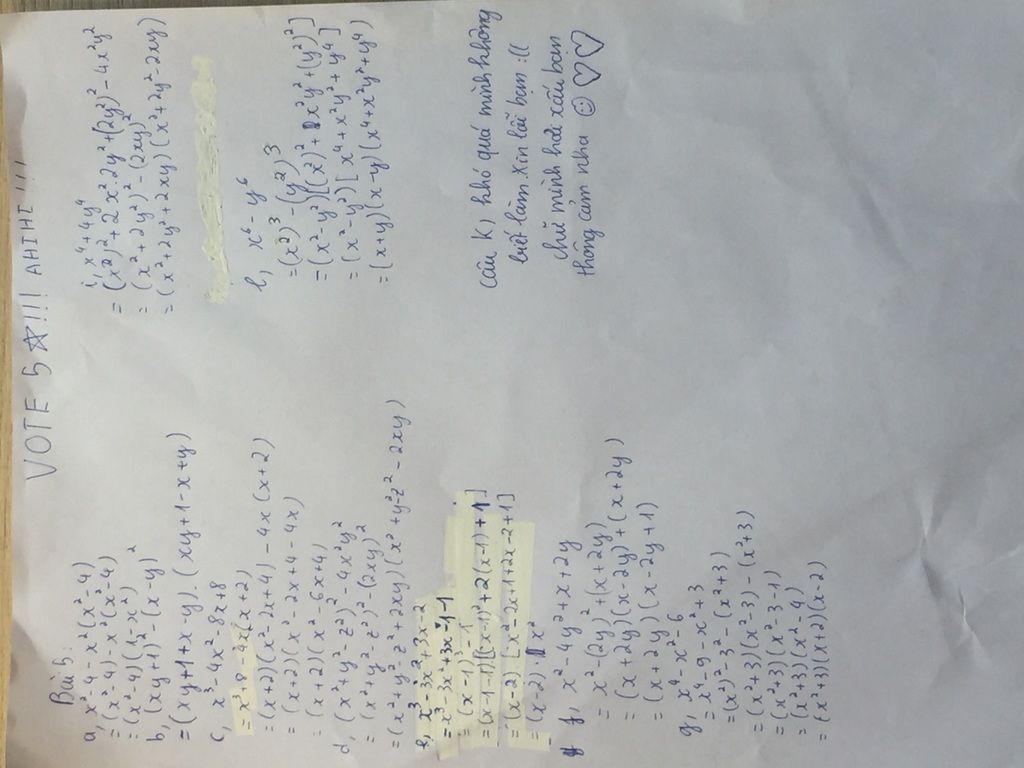 VOTE 5 ☆!!! AHIHI !!!
Bài 5:
a, x²-4-x²(x²-4)
= (x²-4)-x²(x²-4)
= (x²-4)(1-x²)
b, (xy+1)²-(x-y)²
= (xy+1+x-y).(xy+1-x+y)
c, x³-4x²-8x+8
= x³+8-4x(x+2)
= (x+2)(x²-2x+4)-4x(x+2)
= (x+2)(x²-2x+4-4x)
= (x+2)(x²-6x+4)
d, (x²+y²-z²)²-4x²y²
= (x²+y²-z²)²-(2xy)²
= (x²+y²-z²+2xy)(x²+y²-z²-2xy)
e, x³-3x²+3x-2
= x³-3x²+3x-1-1
= (x-1)³-1
= (x-1-1)[(x-1)²+2(x-1)+1]
= (x-2)[x²-2x+1+2x-2+1]
= (x-2).x²
f, x²-4y²+x+2y
= x²-(2y)²+(x+2y)
= (x+2y)(x-2y)+(x+2y)
= (x+2y)(x-2y+1)
g, x⁴-x²-6
= x⁴-9-x²+3
= (x²)²-3²-(x²+3)
= (x²+3)(x²-3)-(x²+3)
= (x²+3)(x²-3-1)
= (x²+3)(x²-4)
= (x²+3)(x+2)(x-2)
i, x⁴+4y⁴
= (x²)²+2x².2y²+(2y²)²-4x²y²
= (x²+2y²)²-(2xy)²
= (x²+2y²+2xy)(x²+2y²-2xy)
l, x⁶-y⁶
= (x²)³-(y²)³
= (x²-y²)[(x²)²+x²y²+(y²)²]
= (x²-y²)[x⁴+x²y²+y⁴]
= (x+y)(x-y)(x⁴+x²y²+y⁴)
Câu K) khó quá mình không
biết làm xin lỗi bạn :((
chữ mình hơi xấu bạn
thông cảm nha ☺ ♡♡♡